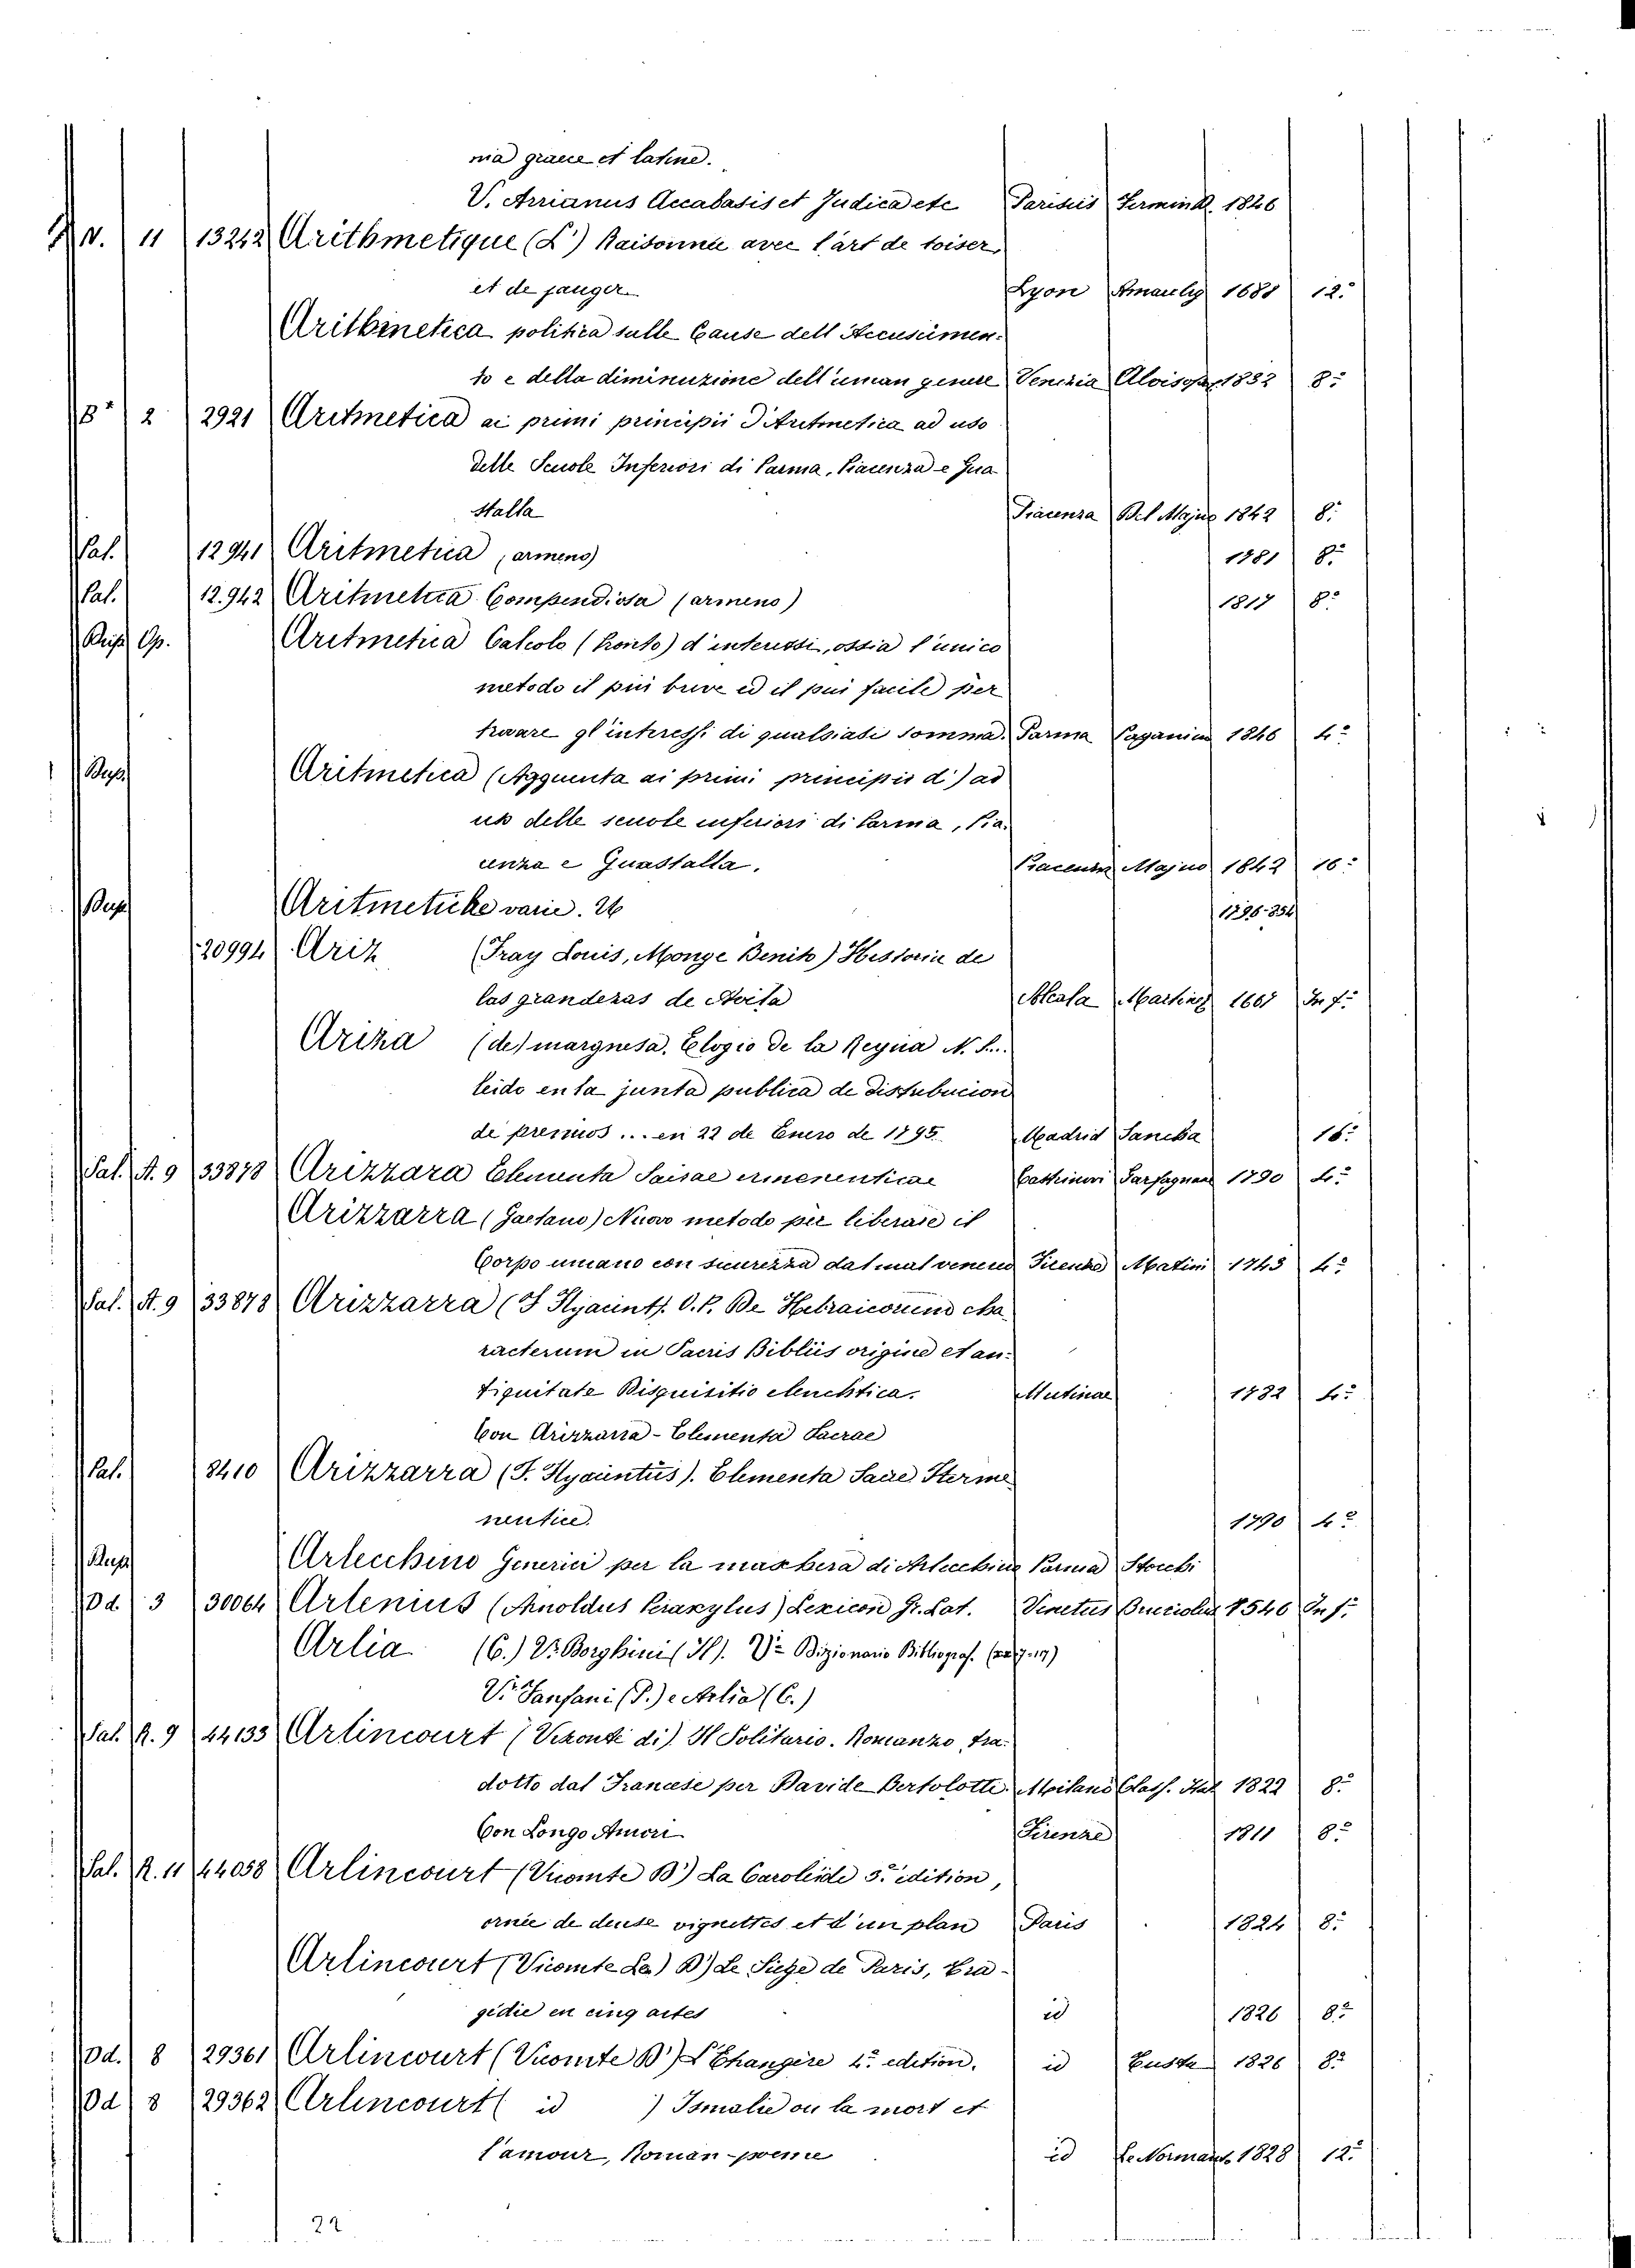 nia graece et latine.
V. Arrianus Accabasis et Judica etc Parisiis Termink. 1826
N. 11 13242 Arithmetique (L') Raisonnée avec l'art de toiser
et de jauger Lyon Amauly 1681 12.°
Arithmetica politica sulle Cause dell Accrescimen-
to e della diminuzione dell'uman genere Venezia Aloisop. 1832 8.°
B* 2 2921 Aritmetica ai primi principii d'Aritmetica ad uso
delle Scuole Inferiori di Parma, Piacenza e Gua
stalla Piacenza Del Majno 1842 8.°
Pal. 12941 Aritmetica (armeno) 1781 8.°
Pal. 12.942 Aritmetica Compendiosa (armeno) 1817 8.°
Op. Aritmetica Calcolo (Pronto) d'interessi, ossia l'unico
metodo il più breve ed il più facile per
trovare gl'interessi di qualsiasi somma. Parma Paganini 1846 4.°
Aritmetica (Aggiunta ai primi principii d') ad
uso delle scuole inferiori di Parma, Pia-
cenza e Guastalla. Piacenza Majno 1842 16.°
Aritmetiche varie. 26 1796-854
20994 Ariz (Fray Louis, Monge Benito) Historia de
las grandezas de Avila Alcala Martinez 1607 In f.°
Ariza (de) marquesa. Elogio de la Reyna N. S..
leido en la junta publica de distribucion
de premios ... en 22 de Enero de 1795. Madrid Sancha 16.°
Pal. A. 9 33878 Arizzara Elementa Saisae ermenenticae Carfagnan 1790 4.°
Arizzarra (Gaetano) Nuovo metodo per liberare il
Corpo umano con sicurezza dal mal venereo Firenze Matini 1743 4.°
Pal. A. 9 33878 Arizzarra (F Hyacint. O. P. De Hebraicorum cha
racterum in Sacris Bibliis origine et an-
tiquitate Disquisitio elenchtica. Mutinae 1782 4.°
Con Arizzarra - Elementa Sacrae
Pal. 8410 Arizzarra (F. Hyacintus). Elementa Sacre Herme
neutice. 1790 4.°
Arlecchino Generici per la maschera di Arlecchino Parma Stocchi
Od. 3 30064 Arlenius (Arnoldus Peraxylus) Lexicon Gr. Lat. Venetus Bruciolus 1546 In f.
Arlia (C.) V. Borghini (Il). V.° Dizionario Bibliograf. (n. 7-17)
V. Fanfani (P.) e Arlia (C.)
Pal. R. 9 44133 Arlincourt (Visconti di) Il Solitario. Romanzo, tra-
dotto dal Francese per Davide Bertolotti. Milano Class. Ital. 1822 8.°
Con Longo Amori Firenze 1811 8.°
Pal. R. 11 44058 Arlincourt (Vicomte D') La Caroleide 3.e édition,
ornée de deuse vignettes et d'un plan Paris 1824 8.°
Arlincourt (Vicomte Le) D') Le Siége de Paris, tra-
gédie en cinq actes id 1826 8.°
Od. 8 29361 Arlincourt (Vicomte D') L'Etrangère 4.e edition. id 1826 8.°
Od 8 29362 Arlincourt ( id ) Ismalie ou la mort et
l'amour, Roman-poeme id Le Normant. 1828 12.°
22